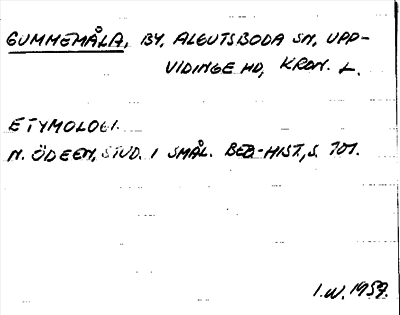 GUMMEMÅLA, BY, ALGUTSBODA SN, UPP-
VIDINGE HD, KRON. L.
ETYMOLOGI.
N. ÖDEEN, STUD. I SMÅL. BEB-HIST, S. 701.
I.W. 1959.